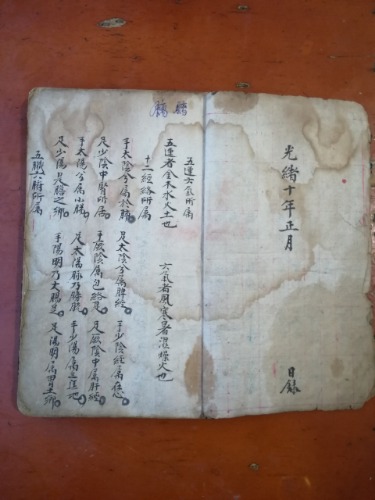 光緒十年正月
目錄
五運六氣所屬
五運者金木水火土也 六氣者風寒暑濕燥火也
十二經絡所屬
手太陰分屬於肺 足太陰分屬脾經 手少陰經屬在心
足少陰中腎所屬 手厥陰屬包絡是 足厥陰中屬肝經
手太陽分屬小腸 足太陽脉乃膀胱 手少陽屬三焦地
足少陽是膽之鄉 手陽明乃大腸是 足陽明屬胃里鄉
五臟六腑所屬